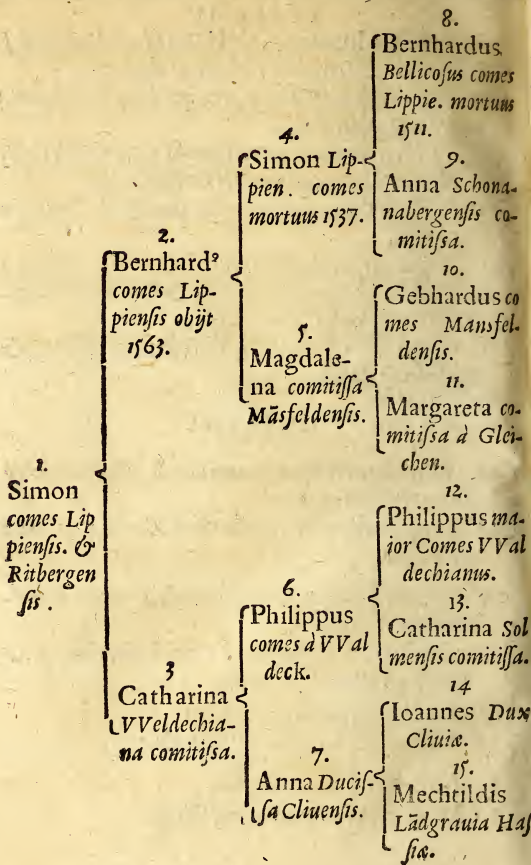 1.
Simon
comes Lip
pienſis. &
Ritbergen
ſis.
2.
Bernhardꝰ
comes Lip-
pienſis obijt
1563.
3
Catharina
VVeldechia-
na comitiſsa.
4.
Simon Lip-
pien. comes
mortuus 1537.
5.
Magdale-
na comitiſſa
Māsfeldenſis.
6.
Philippus
comes à VVal
deck.
7.
Anna Duciſ-
ſa Cliuenſis.
8.
Bernhardus
Bellicoſus comes
Lippie. mortuus
1511.
9.
Anna Schona-
nabergenſis co-
mitiſsa.
10.
Gebhardus co
mes Mansfel-
denſis.
11.
Margareta co-
mitiſsa à Glei-
chen.
12.
Philippus ma-
ior Comes VVal
dechianus.
13.
Catharina Sol
menſis comitiſſa.
14
Ioannes Dux
Cliuiæ.
15.
Mechtildis
Lādgrauia Haſ
ſiæ.